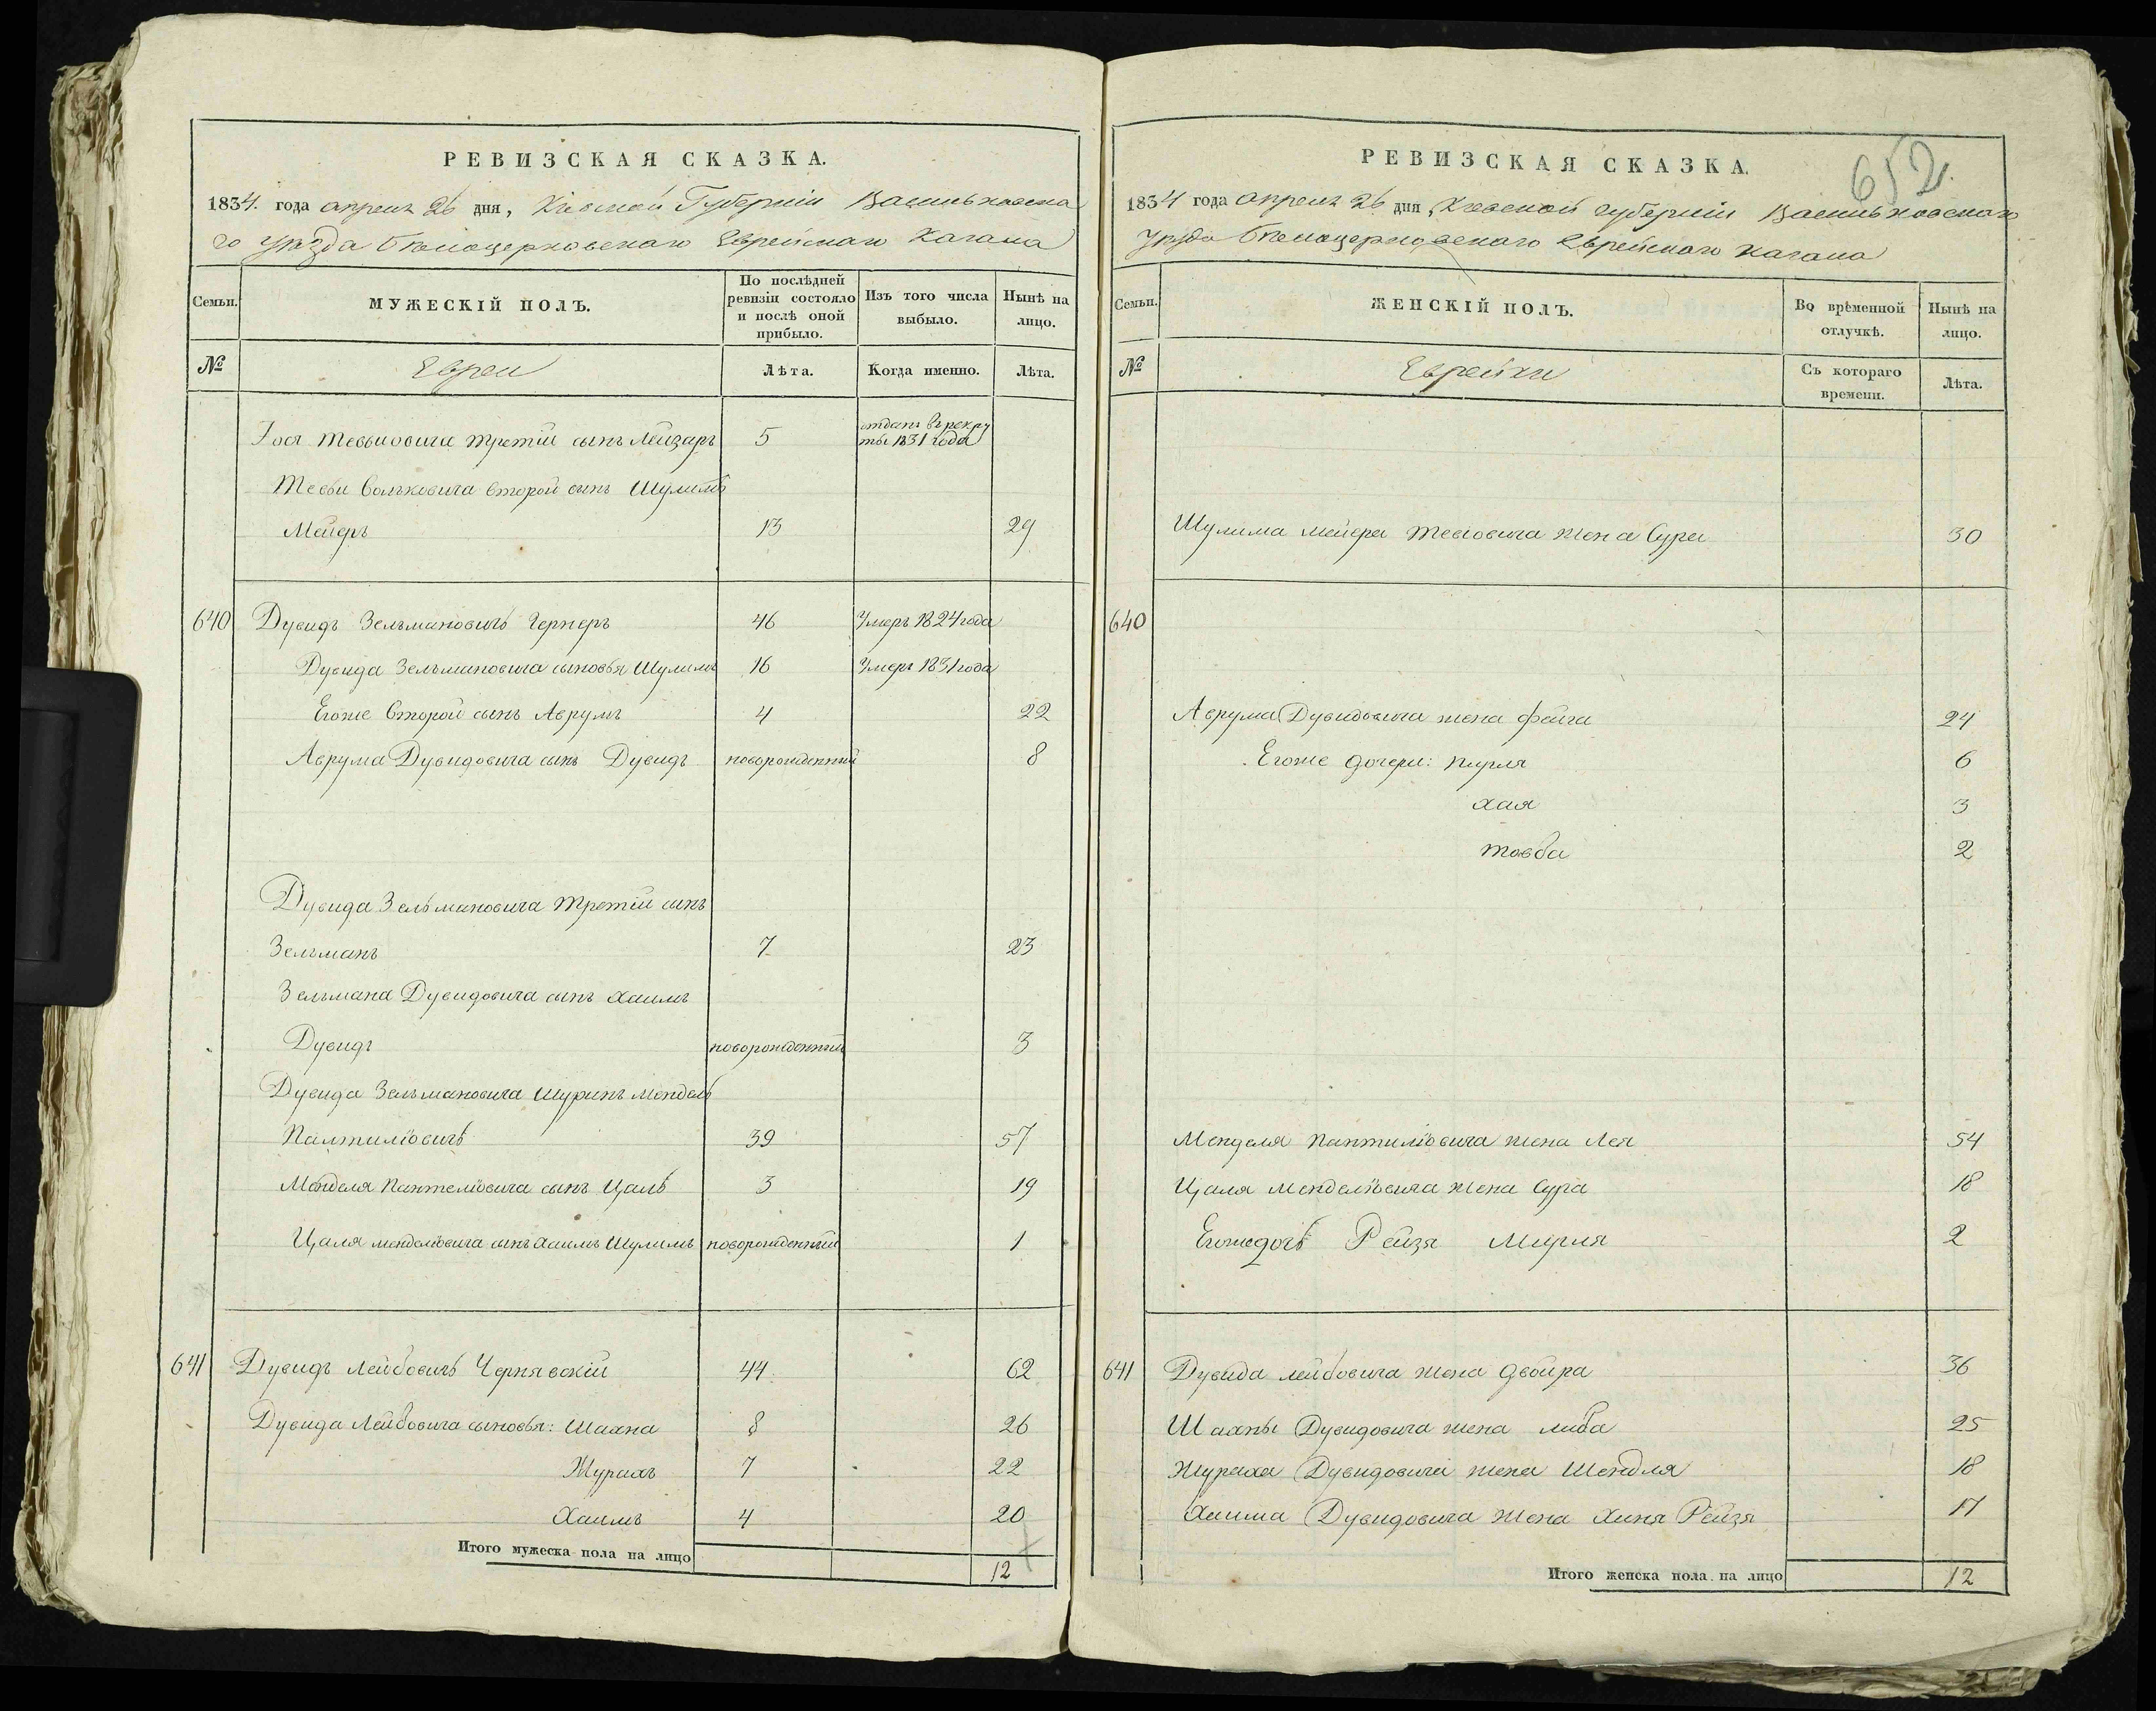 РЕВИЗСКАЯ СКАЗКА.
1834. года апреля 26 дня, Кіевской Губерніи Васильковска
го уѣзда бѣлоцерковскаго Еврейскаго Кагала
Семьи.
МУЖЕСКІЙ ПОЛЪ.
По послѣдней ревизіи состояло и послѣ оной прибыло.
Изъ того числа выбыло.
Нынѣ на лицо.
№
Евреи
Лѣта.
Когда именно.
Лѣта.
Іося Тевьиовича третій сынъ Лейзаръ 5 отданъ въ рекру
ты 1831 года
Тевьи Вольковича второй сынъ Шулимъ
Мейеръ 13 29
640 Дувидъ Зельмановичъ Чернеръ 46 Умеръ 1824 года
Дувида Зельмановича сыновья Шулимъ 16 Умеръ 1831 года
Егоже второй сынъ Аврумъ 4 22
Аврума Дувидовича сынъ Дувидъ новорожденный 8
Дувида Зельмановича третій сынъ
Зельманъ 7 23
Зельмана Дувидовича сынъ Хаимъ
Дувидъ новорожденный 3
Дувида Зельмановича Шуринъ Мендель
Палтиліовичъ 39 57
Менделя Пантеліовича сынъ Цаль 3 19
Цаля менделіовича сынъ Хаимъ Шулимъ новорожденный 1
641 Дувидъ Лейбовичъ Чернявскій 44 62
Дувида Лейбовича сыновья: Шахна 8 26
Журахъ 7 22
Хаимъ 4 20
Итого мужеска пола на лицо 12
652.
РЕВИЗСКАЯ СКАЗКА.
1834 года апреля 26 дня, Кіевской губерніи Васильковскаго
уѣзда бѣлоцерковскаго Еврейскаго Кагала
Семьи.
ЖЕНСКІЙ ПОЛЪ.
Во врѣменной отлучкѣ.
Нынѣ на лицо.
№
Еврейки
Съ котораго времени.
Лѣта.
Шулима мейера Тевіовича жена Сура 30
640
Аврума Дувидовича жена Фейга 24
Егоже дочери: Перля 6
Хая 3
Товба 2
Менделя Пантиліовича жена Лея 54
Цаля Менделіовича жена Сура 18
Егоже дочь Рейзя Мирля 2
641 Дувида лейбовича жена Двойра 36
Шахны Дувидовича жена либа 25
Жураха Дувидовича жена Шендля 18
Хаима Дувидовича жена Хиня Рейзя 17
Итого женска пола на лицо 12